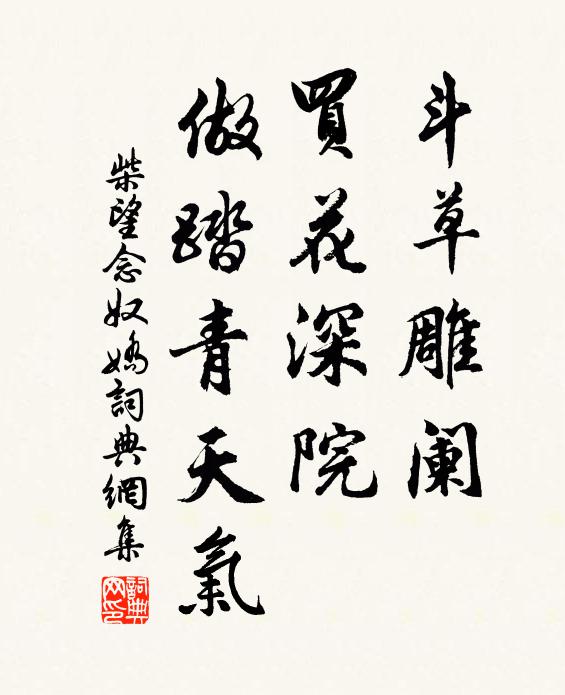 斗草雕阑
買花深院
做踏青天氣
柴望念奴嬌詞典網集
詞典网印